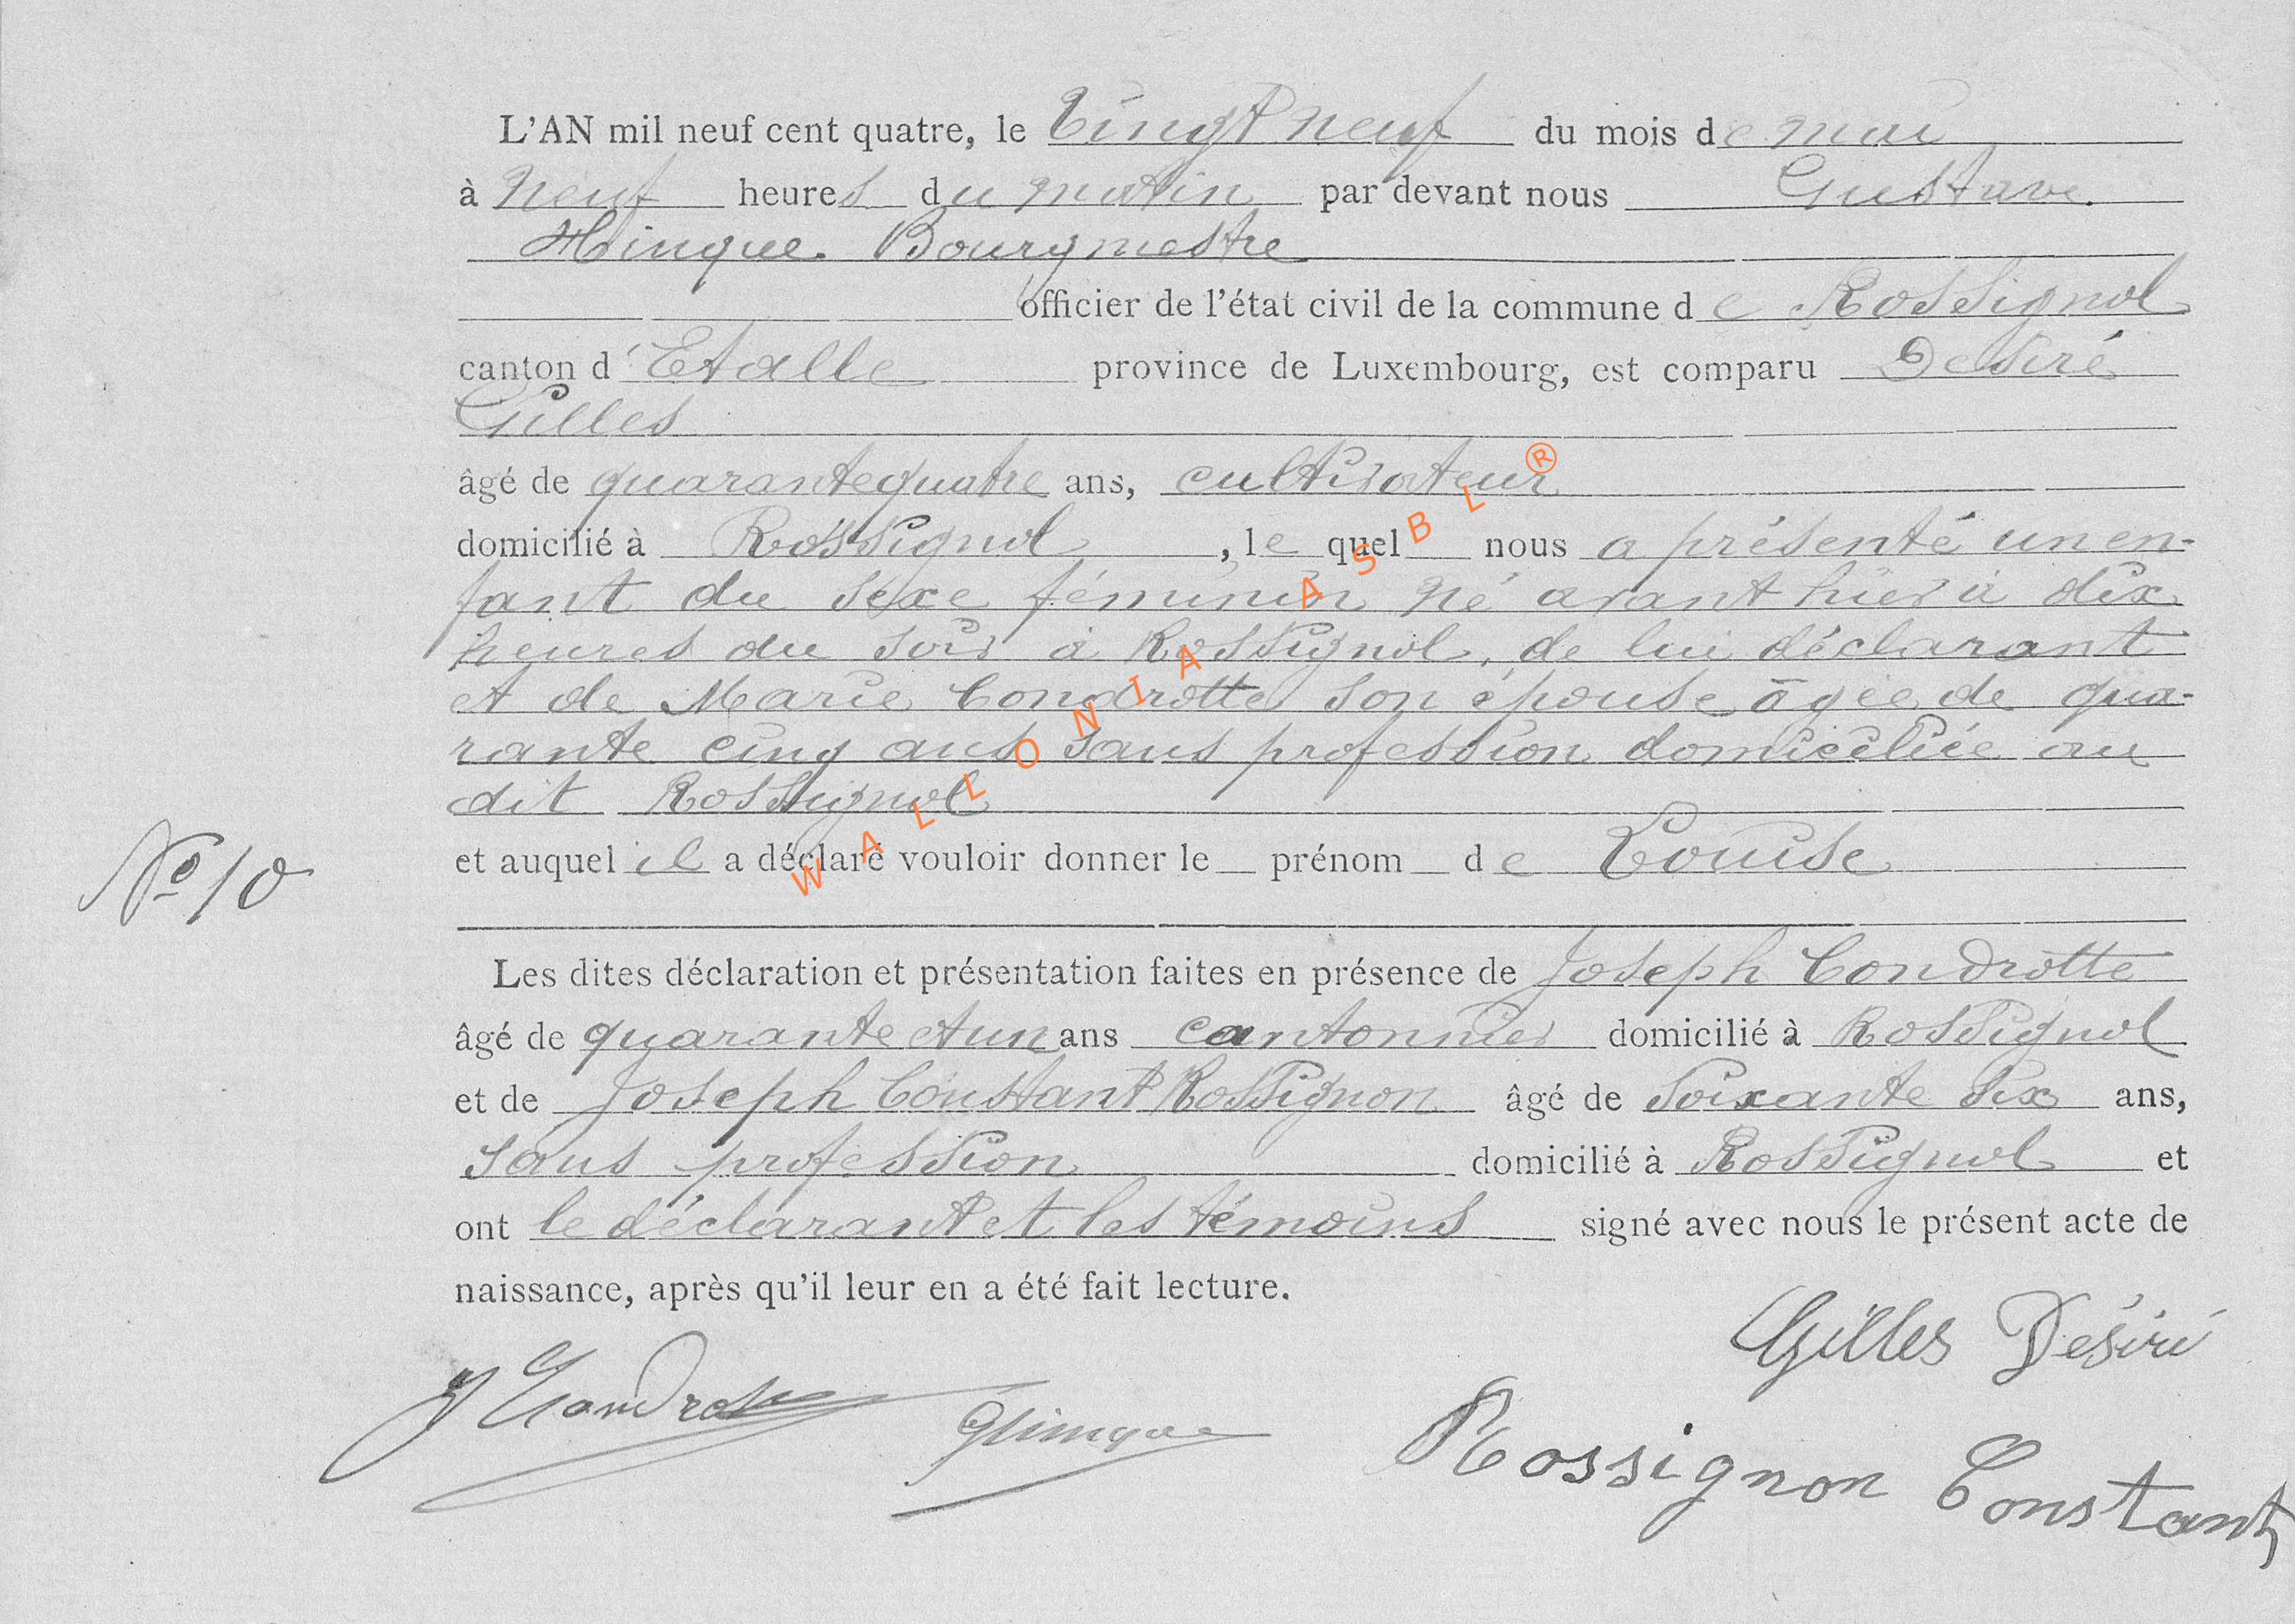 L'AN mil neuf cent quatre, le Vingt neuf du mois de mai
à Neuf heures du matin par devant nous Gustave
Hinque Bourgmestre
officier de l'état civil de la commune de Rossignol
canton d'Etalle province de Luxembourg, est comparu Désiré
Gilles
âgé de quarante quatre ans, cultivateur
domicilié à Rossignol, le quel nous a présenté un en-
fant du sexe féminin né avant hier à dix
heures du soir à Rossignol, de lui déclarant
et de Marie Condrotte son épouse âgée de qua-
rante cinq ans sans profession domiciliée au
dit Rossignol
et auquel il a déclaré vouloir donner le prénom de Louise
N° 10
Les dites déclaration et présentation faites en présence de Joseph Condrotte
âgé de quarante et un ans cantonnier domicilié à Rossignol
et de Joseph Constant Rossignon âgé de soixante six ans,
sans profession domicilié à Rossignol et
ont le déclarant et les témoins signé avec nous le présent acte de
naissance, après qu'il leur en a été fait lecture.
Gilles Désiré
J Condrotte GHinque
Rossignon Constant
WALLONIA ASBL ®